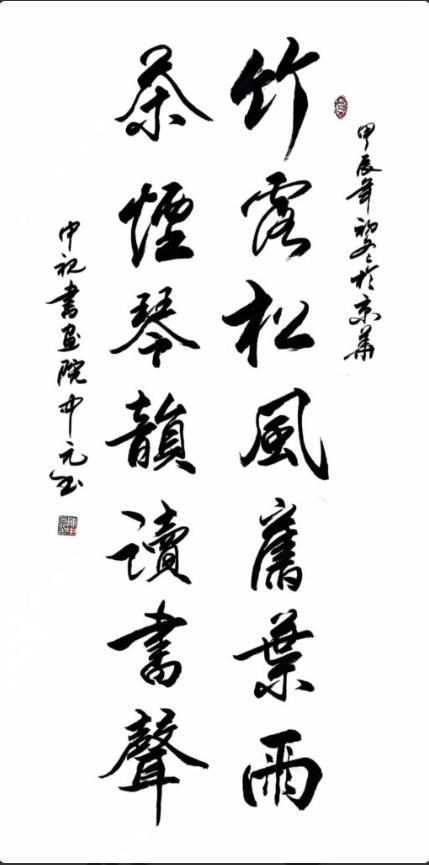 甲辰年初冬於京華
竹露松風舊葉雨
茶煙琴韻讀書聲
中祝書画院中元书